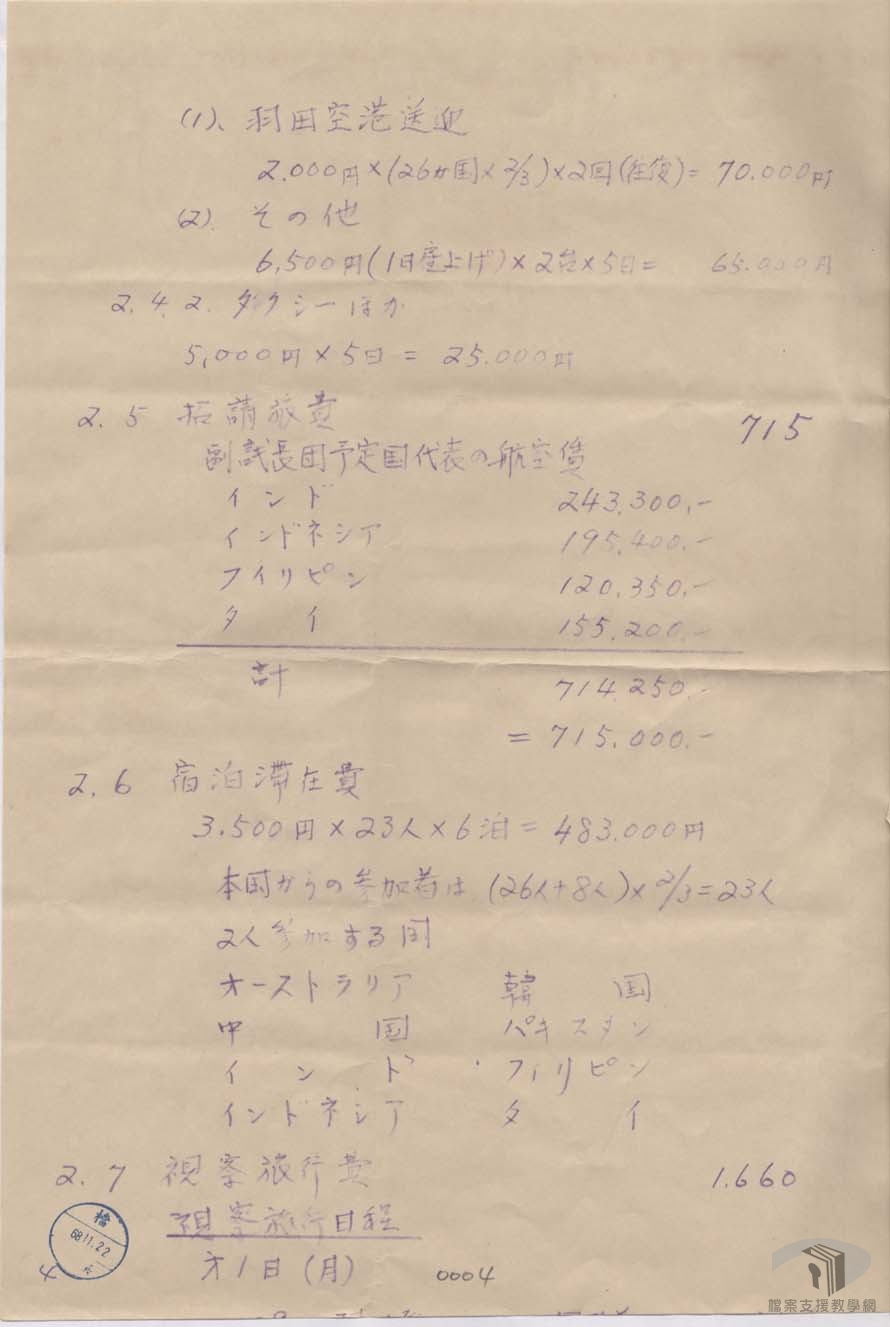 (1)、羽田空港送迎
2.000円×(26ヵ国×2/3)×2回(往復)= 70.000円
(2). その他
6,500円(1日座上げ)×2台×5日= 65.000円
2.4.2. タクシーほか
5,000円×5日 = 25.000円
2.5 招請旅費 715
副議長団予定国代表の航空賃
インド 243.300.-
インドネシア 195.400.-
フイリピン 120.350.-
タイ 155.200.-
計 714.250.-
= 715.000.-
2.6 宿泊滞在費
3.500円×23人×6泊= 483.000円
本国からの参加者は、(26人+8人)×2/3=23人
2人参加する国
オーストラリア 韓国
中国 パキスタン
インド フィリピン
インドネシア タイ
2.7 視察旅行費 1.660
視察旅行日程
才1日(月)
檔
68.11.22
0004
檔案支援教學網